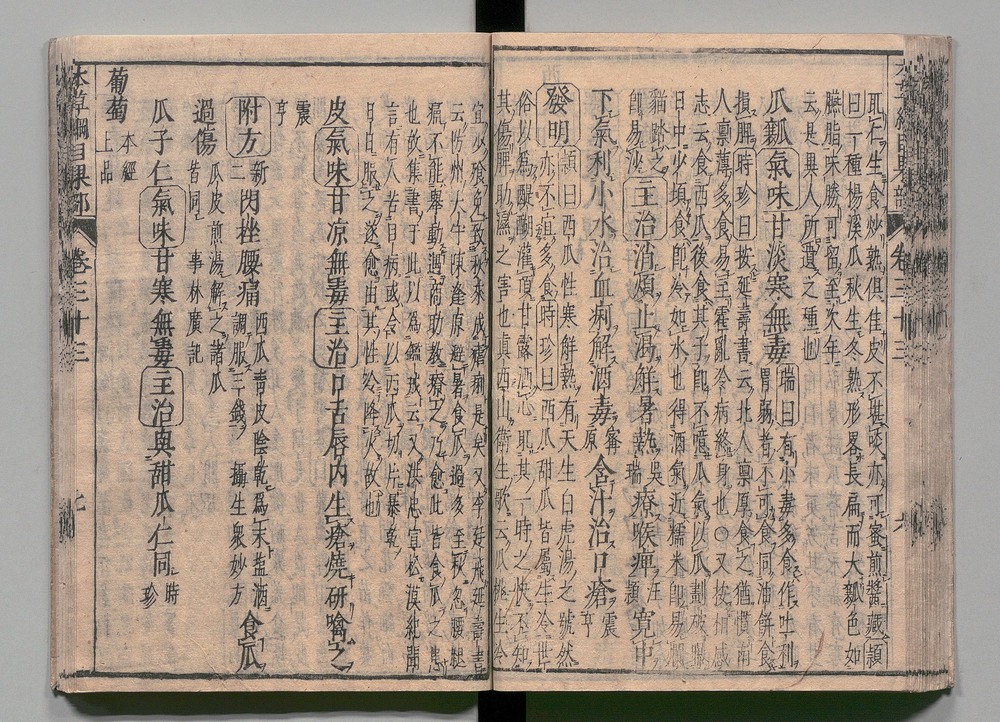 瓜仁生食炒熟俱佳皮不堪啖亦可蜜煎醬藏頴
曰一種楊溪瓜秋生冬熟形畧長扁而大瓤色如
臙脂味勝可留至次年
云是異人所遺之種也
瓜瓤氣味甘淡寒無毒
瑞曰有小毒多食作吐利
胃弱者不可食同油餅食
損脾時珍曰按延壽書云北人禀厚食之猶慣南
人禀薄多食易至霍亂冷病終身也〇又按相感
志云食西瓜後食其子即不噫瓜氣以瓜劃破曝
日中少頃食即冷如水也得酒氣近糯米即易爛
猫踏之
即易沙
主治消煩止渴解暑熱吳瑞療喉痺汪頴寛中
下氣利小水治血痢解酒毒寗原含汁治口瘡震亨
發明頴曰西瓜性寒解熱有天生白虎湯之號然
亦不宜多食時珍曰西瓜甜瓜皆屬生冷世
俗以為醍醐灌頂甘露洒心取其一時之快不知
其傷脾助濕之害也真西山衛生歌云瓜桃生冷
宜少飱免致秋來成瘧痢是矣又李廷飛延壽書
云防州太守陳逢原避暑食瓜過多至秋忽腰腿
痛不能舉動遇商助教療之乃愈此皆食瓜之患
也故集書于此以為鑑戒云又洪忠宣松漠紀聞
言有人苦目病或令以西瓜切片暴乾
日日服之遂愈由其性冷降火故也
皮氣味甘凉無毒主治口舌唇内生瘡燒研噙之
震
亨
附方新二閃挫腰痛西瓜青皮陰乾為末鹽酒
調服三錢攝生衆妙方食瓜
過傷瓜皮煎湯解之諸瓜
皆同事林廣記
瓜子仁氣味甘寒無毒主治與甜瓜仁同時珍
葡萄本經上品
本草綱目果部 卷三十三
卷三十三